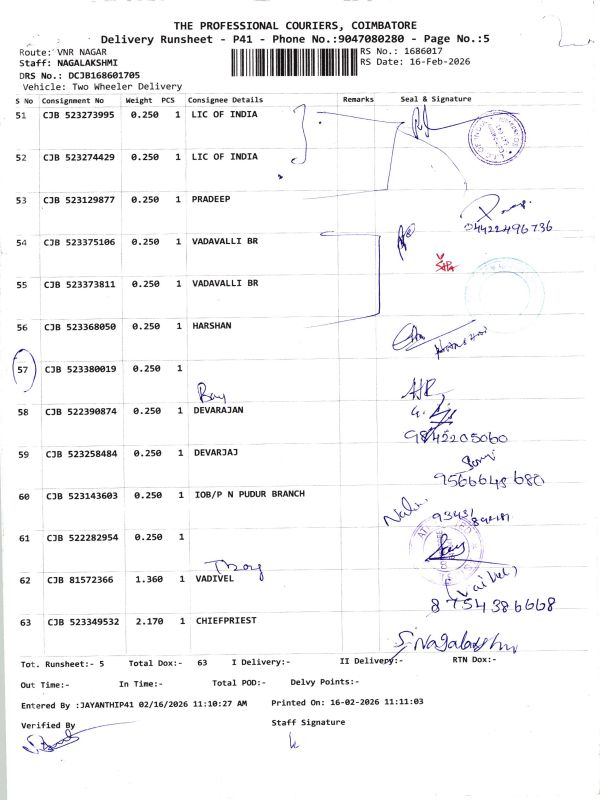 THE PROFESSIONAL COURIERS, COIMBATORE
Delivery Runsheet - P41 - Phone No.:9047080280 - Page No.:5
Route: VNR NAGAR
RS No.: 1686017
Staff: NAGALAKSHMI
RS Date: 16-Feb-2026
DRS No.: DCJB168601705
Vehicle: Two Wheeler Delivery
S No Consignment No Weight PCS Consignee Details Remarks Seal & Signature
51 CJB 523273995 0.250 1 LIC OF INDIA
52 CJB 523274429 0.250 1 LIC OF INDIA
53 CJB 523129877 0.250 1 PRADEEP
04422496736
54 CJB 523375106 0.250 1 VADAVALLI BR
55 CJB 523373811 0.250 1 VADAVALLI BR
56 CJB 523368050 0.250 1 HARSHAN
57 CJB 523380019 0.250 1
58 CJB 522390874 0.250 1 DEVARAJAN
9842205060
59 CJB 523258484 0.250 1 DEVARJAJ
9566648680
60 CJB 523143603 0.250 1 IOB/P N PUDUR BRANCH
61 CJB 522282954 0.250 1
62 CJB 81572366 1.360 1 VADIVEL
8754386668
63 CJB 523349532 2.170 1 CHIEFPRIEST
S. Nagalakshmi
Tot. Runsheet:- 5 Total Dox:- 63 I Delivery:- II Delivery:- RTN Dox:-
Out Time:- In Time:- Total POD:- Delvy Points:-
Entered By :JAYANTHIP41 02/16/2026 11:10:27 AM Printed On: 16-02-2026 11:11:03
Verified By Staff Signature